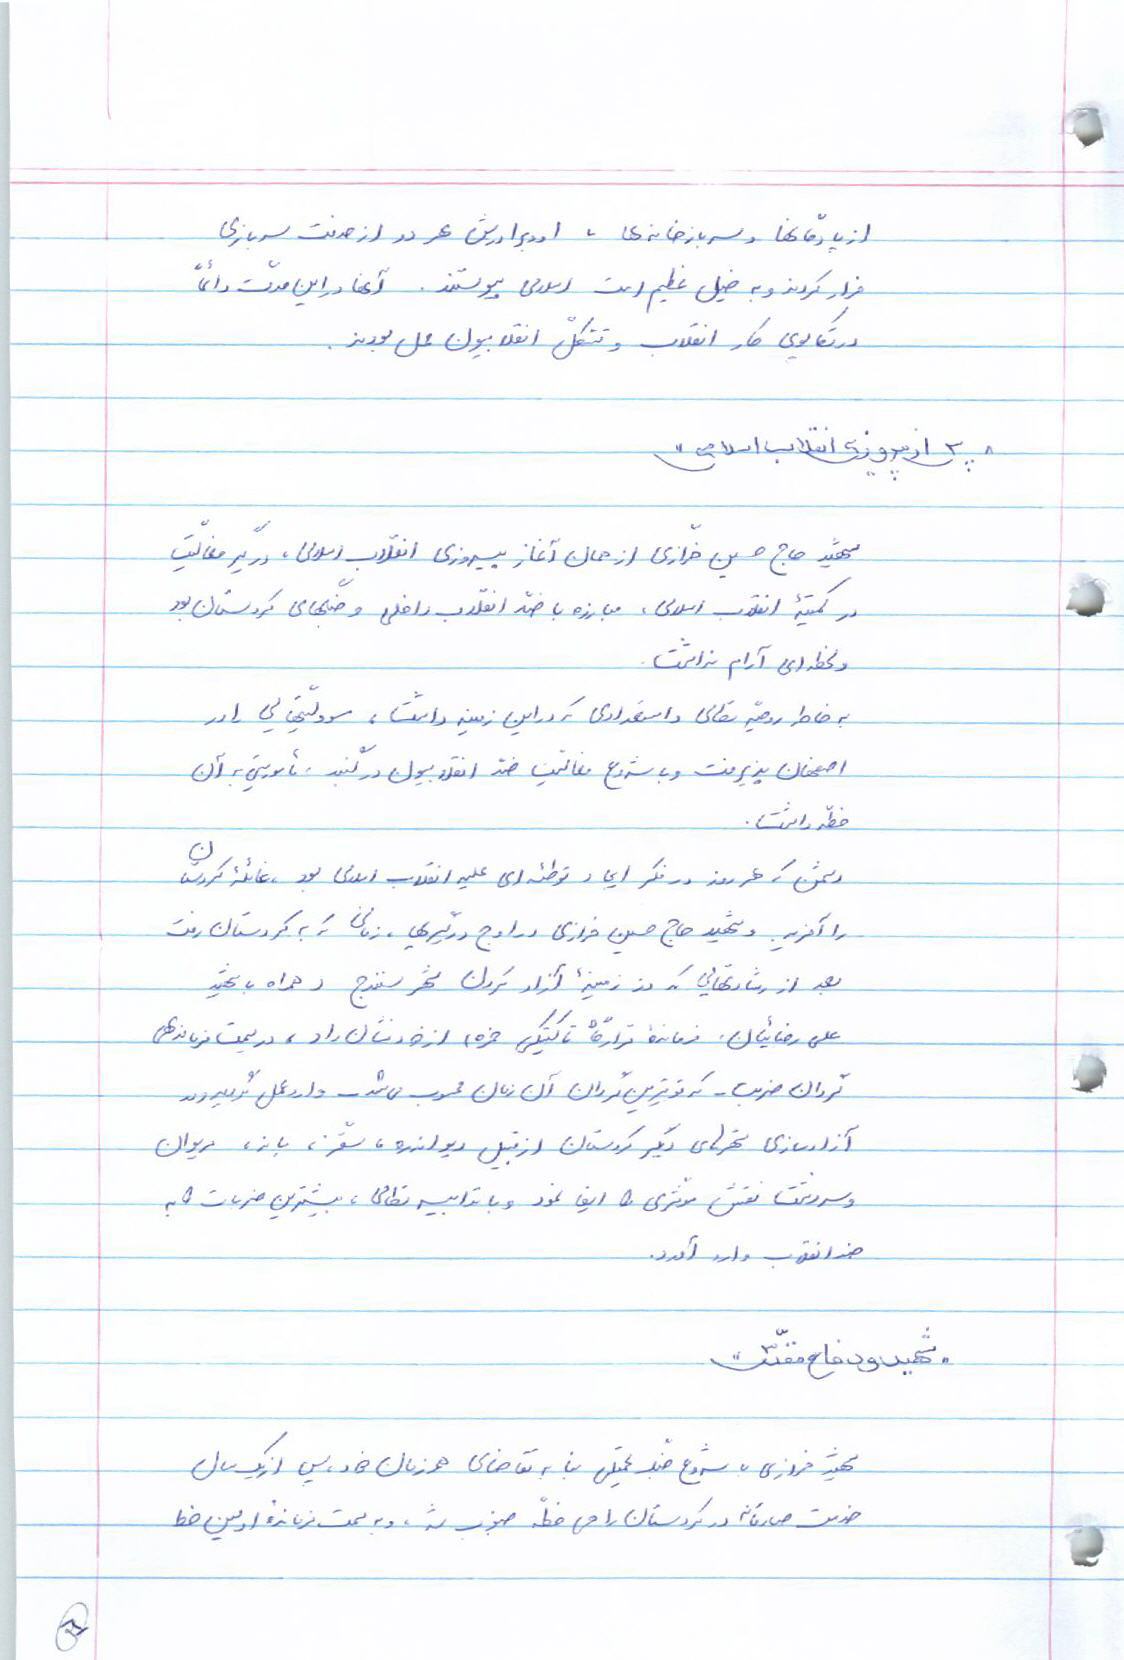 از پادگانها و سربازخانه‌ها ، او و برادرش هر دو از خدمت سربازی
فرار کردند و به خیل عظیم امت اسلامی پیوستند . آنها در این مدّت دائماً
در تکاپوی کار انقلاب و تشکّل انقلابیون عمل بودند .
« پس از پیروزی انقلاب اسلامی »
شهید حاج حسین خرّازی از همان آغاز پیروزی انقلاب اسلامی ، درگیر فعالیّت
در کمیتهٔ انقلاب اسلامی ، مبارزه با ضدّ انقلاب داخلی و جنگهای کردستان بود
و لحظه‌ای آرام نداشت .
به خاطر روحیّه نظامی و استعدادی که در این زمینه داشت ، مسولیّتهایی را در
اصفهان پذیرفت و با شروع فعالیّت ضدّ انقلابیون در گنبد ، مأموریّتی به آن
خطّه داشت .
دشمن که هر روز در فکر ایجاد توطئه‌ای علیه انقلاب اسلامی بود ، غائلهٔ کردستان
را آفرید و شهید حاج حسین خرازی در اوج درگیریها ، زمانی که به کردستان رفت
بعد از رشادتهایی که در زمینهٔ آزاد کردن شهر سنندج در همراه با شهید
علی رضائیان ، فرماندهٔ قرارگاه تاکتیکی حمزه ، از خود نشان داد ، در سمت فرماندهی
گردان ضربت - که قویترین گردان آن زمان محسوب می‌شد - وارد عمل گردید و در
آزادسازی شهرهای دیگر کردستان از قبیل دیواندره ، سقّز ، بانه ، مریوان
و سردشت نقش مؤثری را ایفا نمود و با تدابیر نظامی ، بیشترین ضربات را به
ضد انقلاب وارد آورد .
« شهید و دفاع مقدّس »
شهید خرازی با شروع جنگ تحمیلی بنا به تقاضای همرزمان خود ، پس از یک سال
خدمت صادقانه در کردستان راهی خطّه جنوب شد ، و به سمت فرماندهٔ اولین خط